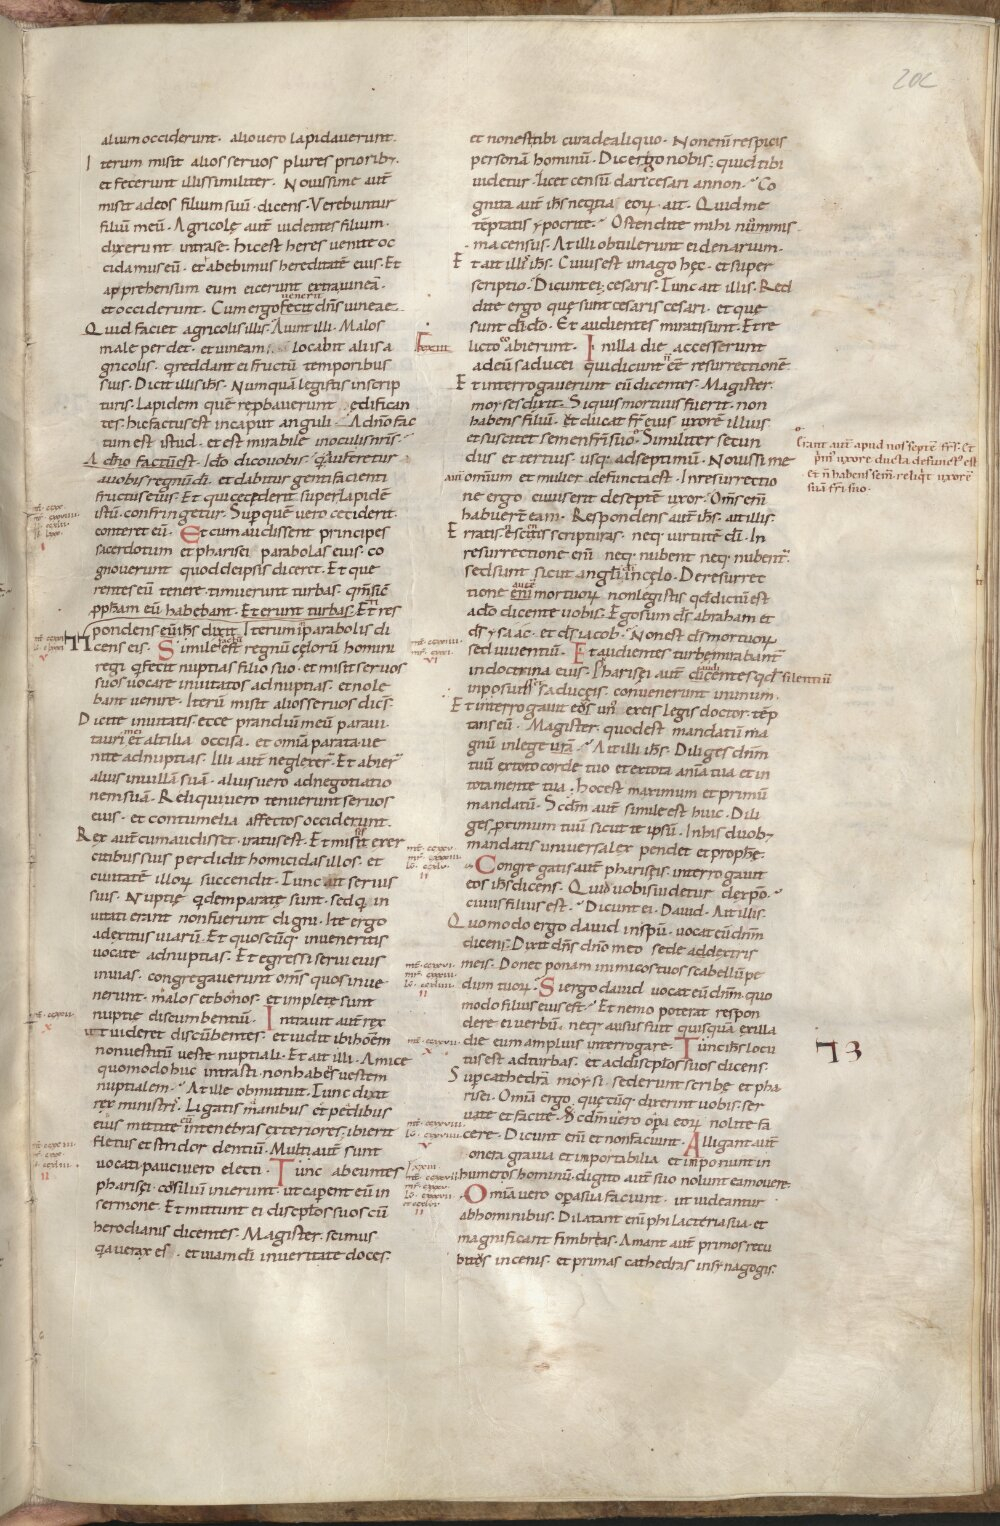 202
alium occiderunt · alio vero lapidaverunt ·
Iterum misit alios servos plures priorib; ·
et fecerunt illis similiter · Novissime aut̄
misit ad eos filium suū · dicens · Verebuntur
filiū meū · Agricolę aut̄ videntes filium ·
dixerunt intra se · hic est heres venite oc
cidamus eū · et abebimus hereditatē eius · Et
apprehensum eum eicerunt extra vineā ·
et occiderunt · Cum ergo fecit dn̄s vineae
venerit
Quid faciet agricolis illis · Aiunt illi · Malos
male perdet · et vineam locabit aliis a
gricolis · q̄ reddant ei fructū temporibus
suis · Dicit illis ih̄s · Numquā legistis in scrip
turis · Lapidem quē reprobaverunt edifican
tes · hic factus est in caput anguli · A dn̄o fac
tum est istud · et est mirabile in oculis nr̄is ·
A dn̄o factū est · Ido dico vobis · q̄ auferetur
a vobis regnū dī · et dabitur genti facienti
fructus eius · Et qui ceciderit super lapidē
istū · confringetur · Sup quē vero ceciderit ·
conteret eū · Et cum audissent principes
sacerdotum et pharisei parabolas eius · co
gnoverunt quod de ipsis diceret · Et que
rentes eū tenere · timuerunt turbas · qm̄ sic̄
pp̄ham eū habebant · Et erunt turbas · Et res
pondens eūih̄s dixit Iterum ī parabolis di
cens eis · Simile est regnū cęlorū homini
factū
regi q̄ fecit nuptias filio suo · et misit servos
suos vocare invitatos ad nuptias · et nole
bant venire · Iterū misit alios servos dic̄s ·
Dicite invitatis · ecce prandiū meū paravi ·
tauri mei et altilia occisa · et omīa parata ve
nite ad nuptias · Illi aut̄ neglexer̄ · Et abier̄
alius in villā suā · alius vero ad negotiatio
nem suā · Reliqui vero tenuerunt servos
eius · et contumelia affectos occiderunt ·
Rex aut̄ cum audisset · iratus est · Et misit exer
citibus suis perdidit homicidas illos · et
civitatē illorū succendit · Tunc ait servis
suis · Nuptię q̄dem paratę sunt · sed q̄ in
vitati erant non fuerunt digni · Ite ergo
ad exitus viarū · Et quoscūq; inveneritis
vocate ad nuptias · Et egressi servi eius
in vias · congregaverunt om̄s quos inve
nerunt · malos et bonos · et implete sunt
nuptie discumbentiū · Intravit aut̄ rex
ut videret discūbentes · et vidit ibi hoīem
non vestitū veste nuptiali · Et ait illi · Amice
quomodo huc intrasti · non habēs vestem
nuptialem · At ille obmutuit · Tunc dixit
rex ministri · Ligatis manibus et pedibus
eius mittite eū in tenebras exteriores · ibi erit
fletus et stridor dentiū · Multi aut̄ sunt
vocati · pauci vero electi · Tunc abeuntes
pharisei cōsiliū inierunt · ut caperent eū in
sermone · Et mittunt ei discip̄los suos cū
herodianis dicentes · Magister · scimus
q̄a verax es · et viam dī in veritate doces ·
et non est tibi cura de aliquo · Non enī respicis
personā hominū · Dic ergo nobis · quid tibi
videtur · licet censū dari cesari an non · Co
gnita aut̄ ih̄s neq̄tia eorū · ait · Quid me
tēptatis ypocrite · Ostendite mihi nummis
ma census · At illi obtulerunt ei denarium ·
Et ait illis ih̄s · Cuius est imago hęc · et super
scriptio · Dicunt ei · cesaris · Tunc ait illis · Red
dite ergo quę sunt cesaris cesari · et que
sunt dī dō · Et audientes mirati sunt · Et re
licto eo abierunt · In illa die accesserunt
ad eū saducei qui dicunt n̄ eē resurrectionē
Et interrogaverunt eū dicentes · Magister ·
moyses dixit · Si quis mortuus fuerit · non
habens filiū · et ducat fr̄ eius uxorē illius
et suscitet semen fr̄i suo · Similiter secun
dus et tertius · usq; ad septimū · Novissime
aut̄ omnium et mulier defuncta est · In resurrectio
ne ergo cuius erit de septē uxor · Om̄s enī
habuer̄t eam · Respondens aut̄ ih̄s · ait illis ·
Erratis · nescitis scripturas · neq; virtutē dī · In
resurrectione enī neq; nubent neq; nubent̄ ·
sed sunt sicut angl̄i dī in cęlo · De resurrec
tione enī mortuorū · non legistis qd̄ dictū est
aut̄
a dō dicente vobis · Ego sum ds̄ abraham et
ds̄ ysaac · et ds̄ iacob · Non est ds̄ mortuorū
sed viventiū · Et audientes turbę mirabant̄
in doctrina eius · Pharisei aut̄ dicentes qd̄ silentiū
audi
inposuisset saduceis · convenerunt in unum ·
Et interrogavit eōs un̄ ex eis legis doctor · tēp
tans eū · Magister · quod est mandatū ma
gnū in lege · Ait illi ih̄s · Diliges dn̄m
tuū ex toto corde tuo et ex tota anīa tua et in
tota mente tua · Hoc est maximum et primū
mandatū · Scd̄m aut̄ simile est huic · Dili
ges proximum tuū sicut te ipsū · In his duob;
mandatis universa lex pendet et prophe ·
Congregatis aut̄ phariseis · interrogavit
eos ih̄s dicens · Quid vobis videtur de xp̄o ·
cuius filius est · Dicunt ei · David · Ait illis ·
Quomodo ergo david in spū · vocat eū dn̄m
dicens · Dixit dn̄s dn̄o meo sede a dextris
meis · Donec ponam inimicos tuos scabellū pe
dum tuorū · Si ergo david vocat eū dn̄m · quo
modo filius eius est · Et nemo poterat respon
dere ei verbū · neq; ausus fuit quisquā ex illa
die eum amplius interrogare · Tunc ih̄s locu
tus est ad turbas · et ad discip̄los suos dicens ·
Sup cathedrā moysi sederunt scribę et pha
risei · Omīa ergo quęcūq; dixerint vobis · ser
vate et facite · Scd̄m vero op̄a eorū nolite fa
cere · Dicunt enī et non faciunt · Alligant aut̄
onera gravia et importabilia et imponunt in
humeros hominū · digito aut̄ suo nolunt ea movere ·
Omīa vero opera sua faciunt · ut videantur
ab hominibus · Dilatant enī philacteria sua · et
magnificant fimbrias · Amant aut̄ primos recu
bitos in cenis · et primas cathedras in synagogis ·
Erant aut̄ apud nos septē fr̄s · Et
prim̄ uxore ducta defunct̄ est
et n̄ habens sem̄ · reliq̄t uxorē
suā fr̄i suo ·